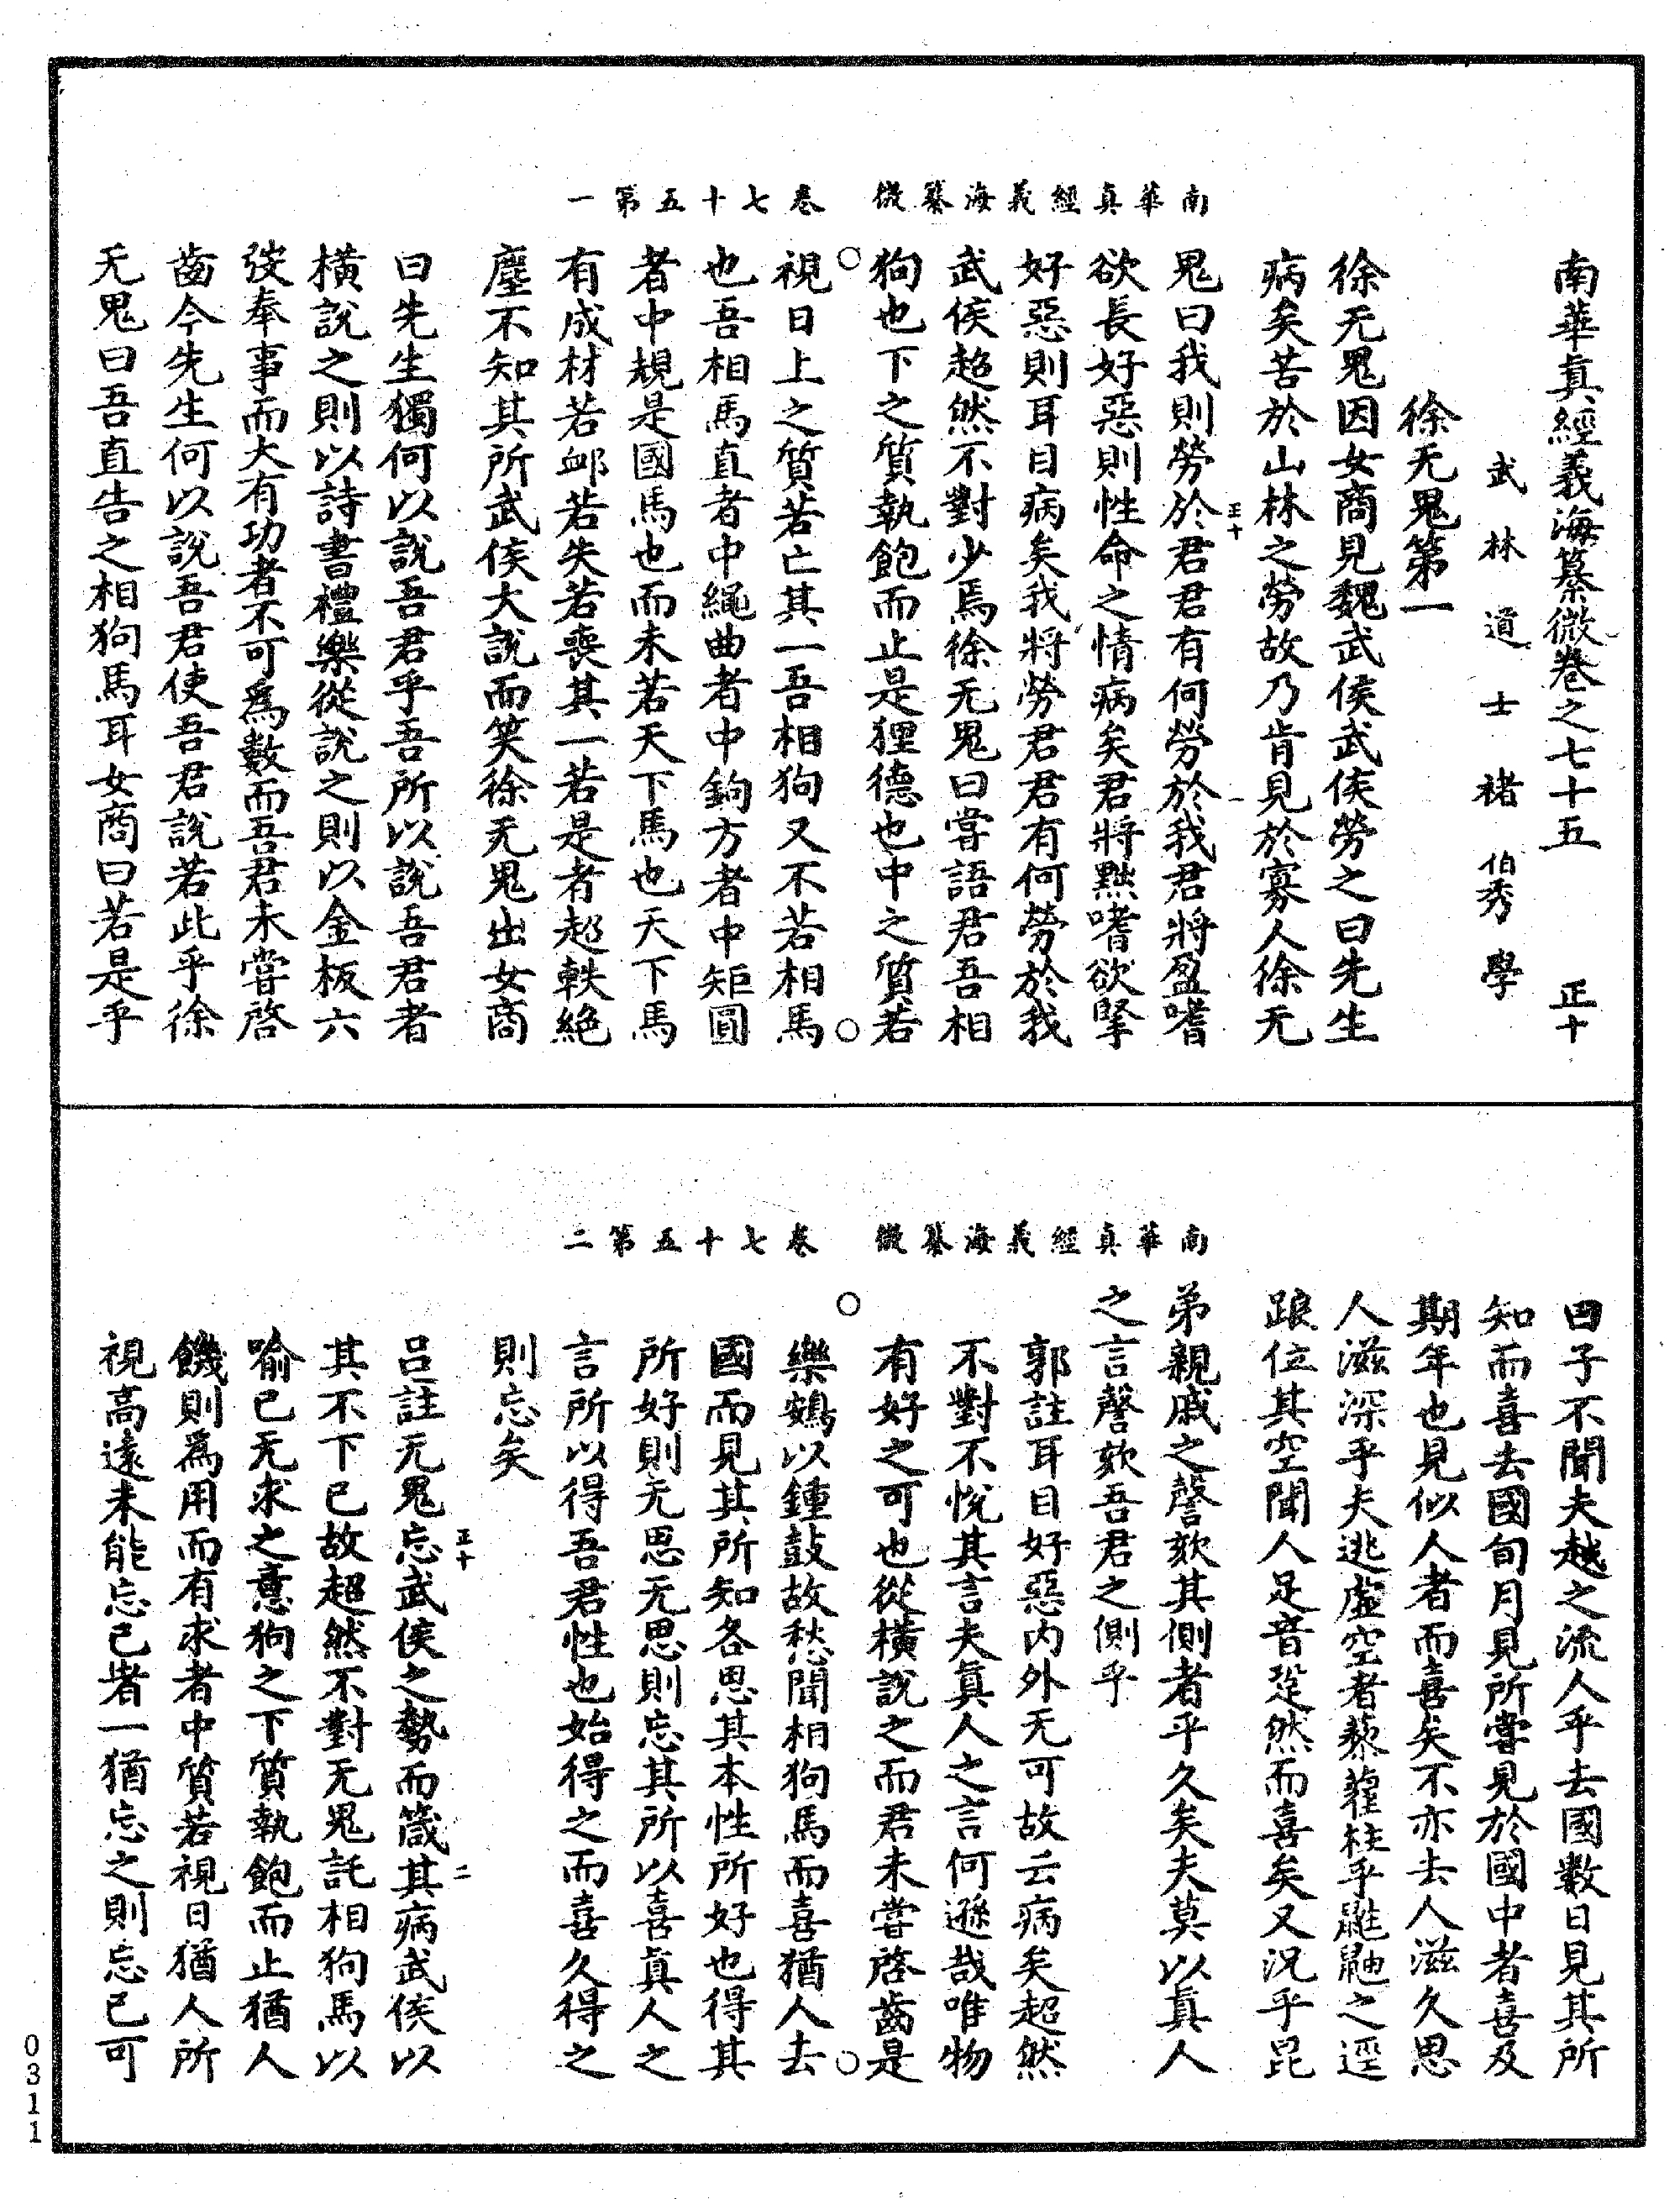 南華真經義海纂微卷七十五第一
南華真經義海纂微卷之七十五 正十
武林道士褚伯秀學
徐无鬼第一
徐无鬼因女商見魏武侯武侯勞之曰先生
病矣苦於山林之勞故乃肯見於寡人徐无
鬼曰我則勞於君君有何勞於我君將盈嗜
正十 一
欲長好惡則性命之情病矣君將黜嗜欲掔
好惡則耳目病矣我將勞君君有何勞於我
武侯超然不對少焉徐无鬼曰嘗語君吾相
狗也下之質執飽而止是狸德也中之質若
視日上之質若亡其一吾相狗又不若相馬
也吾相馬直者中繩曲者中鉤方者中矩圓
者中規是國馬也而未若天下馬也天下馬
有成材若卹若失若喪其一若是者超軼絕
塵不知其所武侯大說而笑徐无鬼出女商
曰先生獨何以說吾君乎吾所以說吾君者
橫說之則以詩書禮樂從說之則以金板六
弢奉事而大有功者不可為數而吾君未嘗啓
齒今先生何以說吾君使吾君說若此乎徐
无鬼曰吾直告之相狗馬耳女商曰若是乎
南華真經義海纂微卷七十五第二
曰子不聞夫越之流人乎去國數日見其所
知而喜去國旬月見所嘗見於國中者喜及
期年也見似人者而喜矣不亦去人滋久思
人滋深乎夫逃虛空者藜藋柱乎鼪鼬之逕
踉位其空聞人足音跫然而喜矣又況乎昆
弟親戚之謦欬其側者乎久矣夫莫以真人
之言謦欬吾君之側乎
郭註耳目好惡內外无可故云病矣超然
不對不悅其言夫真人之言何遜哉唯物
有好之可也從橫說之而君未嘗啓齒是
樂鴳以鍾鼓故愁聞相狗馬而喜猶人去
國而見其所知各思其本性所好也得其
所好則无思无思則忘其所以喜真人之
言所以得吾君性也始得之而喜久得之
則忘矣
正十 二
呂註无鬼忘武侯之勢而箴其病武侯以
其不下已故超然不對无鬼託相狗馬以
喻已无求之意狗之下質執飽而止猶人
饑則為用而有求者中質若視日猶人所
視高遠未能忘已者一猶忘之則忘已可
0311